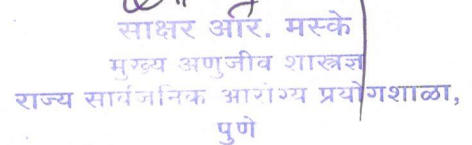 साक्षर आर. मस्के
मुख्य अणुजीव शास्त्रज्ञ
राज्य सार्वजनिक आरोग्य प्रयोगशाळा,
पुणे